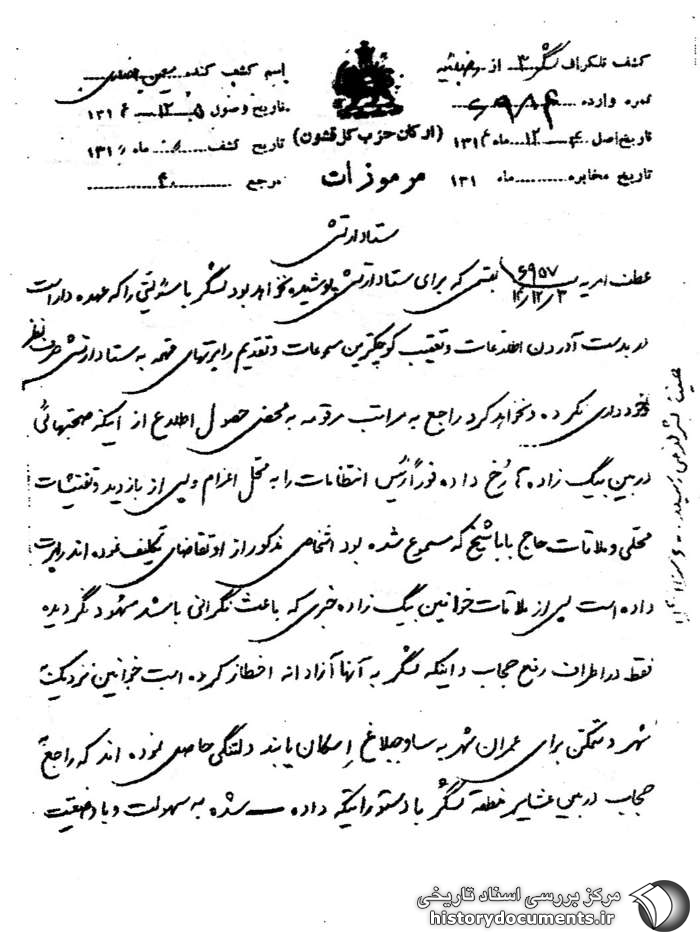 کشف تلگراف لشگر ۳ از رضائیه اسم کشف کننده
نمره وارده ۶۹۸۴ تاریخ وصول ۵ ۱۲ ۱۳۱۶
تاریخ اصل ۴ ۱۲ ماه ۱۳۱۶ (ارکان حزب کل قشون) تاریخ کشف ماه ۱۳۱
تاریخ مخابره ماه ۱۳۱ مرموزات مرجع ۴۰
ستاد ارتش
عطف امریه ۶۹۵۷ ۱۶/۱۲/۳ بقسمی که برای ستاد ارتش پوشیده نخواهد بود لشگر با مسئولیتی را که عهده دار است
در بدست آوردن اطلاعات و تعقیب کوچکترین مسموعات و تقدیم راپرتهای به ستاد ارتش صرف نظر
خودداری نکرده و نخواهد کرد راجع به مراتب مرقومه به محض حصول اطلاع از اینکه صحبتهائی
در بین بیگ زاده ها رخ داده فوراً رئیس انتظامات را به محل اعزام و پس از بازدید و تفتیشات
محلی و ملاقات حاج باباشیخ که مسموع شده بود اشخاص مذکور از او تقاضای تکلیف نموده اند راپرت
داده است پس از ملاقات خوانین بیگ زاده خبری که باعث نگرانی باشد مشهود نگردیده
فقط در اطراف رفع حجاب و اینکه لشگر به آنها آزادانه اخطار کرده است خوانین نزدیک
شهر و متمکن برای عمران شهر به ساوجبلاغ اسکان یابند دلتنگی حاصل نموده اند که راجع
حجاب در بین عشایر منطقه لشگر با دستوراتیکه داده شده به سهولت و با وضعیت
مرکز بررسی اسناد تاریخی
historydocuments.ir